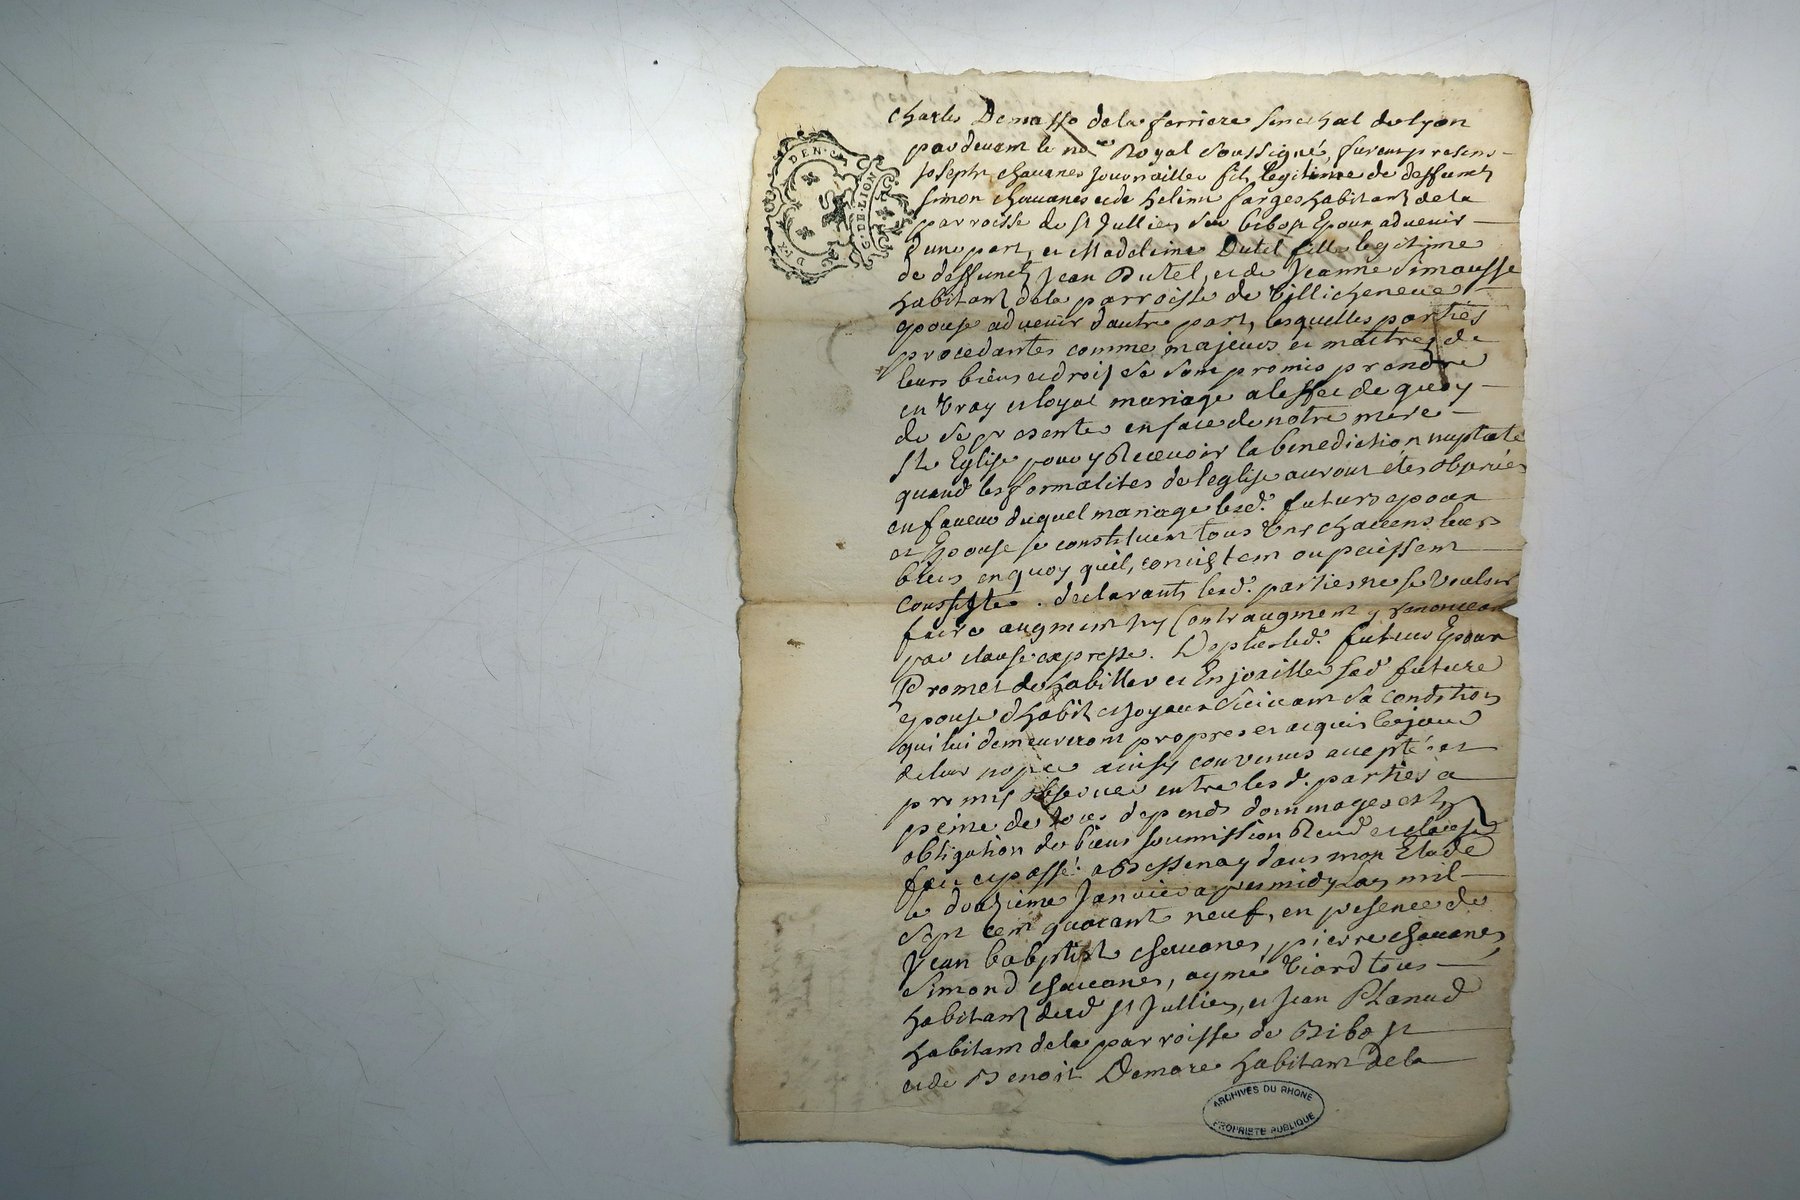 Charles Demasso dela ferriere senechal de lyon
pardevant le no.re Royal soussigné, furent presens
joseph chavanes journaillier fils legitime de deffunts
simon chavanes et de heleine farges habitant de la
parroisse de st Jullien sur bibost Epoux advenir
d'une part, et Madeleine Dutel fille legitime
de deffunct Jean Dutel, et de Jeanne Simousse
habitant dela parroisse de Villecheneve
epouse advenir dautre part, lesquelles parties
procedantes comme majeurs et maitres de
leurs biens et droits se sont promis prendre
en vray et loyal mariage a leffet de quoy
de se presenter en face de notre mere
ste Eglise pour y Recevoir la benediction nuptiale
quand les formalités de leglise auront étés observées
en faveur duquel mariage lesd. futurs epoux
et Epouse se constituent tous Uns chacuns leurs
biens en quoy quil, consistent ou puissent
consister. declarants lesd. parties ne se vouloir
faire augment ny Contraugment y renonceant
par clause expresse. De plus led. futur Epoux
Promet de habiller et Enjoailler sad. future
epouse dhabits et joyaux suivant sa condition
qui lui demeureront propres et acquis le jour
de leur nopce ainsy convenus accepté et
promis observer entre lesd. parties a
peine de tous depends dommages et
obligation de biens soumission Rend. et clause
fait et passé a Bessenay dans mon Etude
le douzieme Janvier apres midy Lan mil
sept cent quarant neuf, en presence de
Jean baptist chavanes, pierre chavanes,
Simond chavanes, aymé Viard tous
habitants dud. st Jullien, et Jean Planud
habitant dela parroisse de Bibost
et de Benoit Demare habitant dela
DEN.
G. DE LION
ARCHIVES DU RHONE
PROPRIETE PUBLIQUE